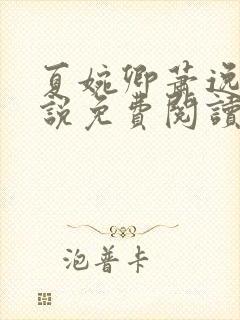 夏婉卿蕭逸
說免費閱讀
泡普卡